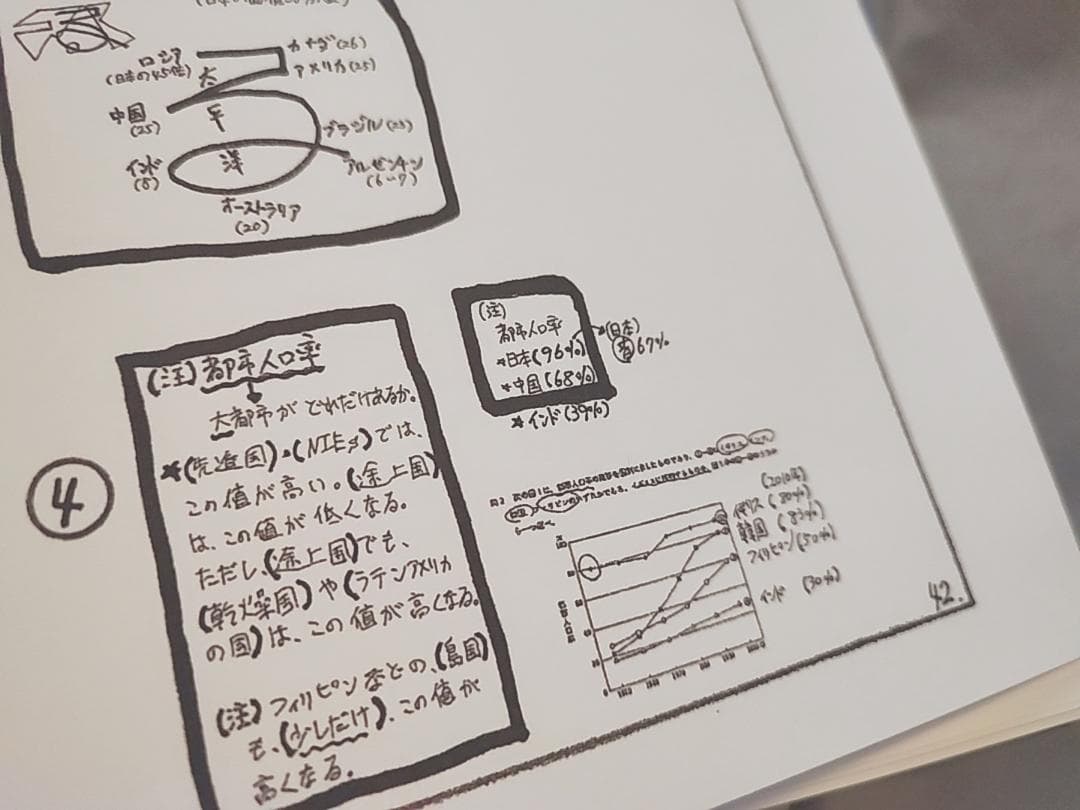 ロシア
(日本の45倍)
カナダ(26)
アメリカ(25)
太
中国
(25)
平
ブラジル(23)
インド
(8)
洋
アルゼンチン
オーストラリア
(20)
(注)
都市人口率
*日本(96%)
*中国(68%)
*インド(39%)
(日本)
67%
④
(注)都市人口率
大都市がどれだけあるか。
*(先進国)・(NIEs)では、
この値が高い。(途上国)
は、この値が低くなる。
ただし、(途上国)でも、
(乾燥国)や(ラテンアメリカ
の国)は、この値が高くなる。
(注)フィリピンなどの、(島国)
も、(少しだけ)、この値が
高くなる。
(2010年)
イギリス(80%)
韓国(83%)
フィリピン(50%)
インド(30%)
42.